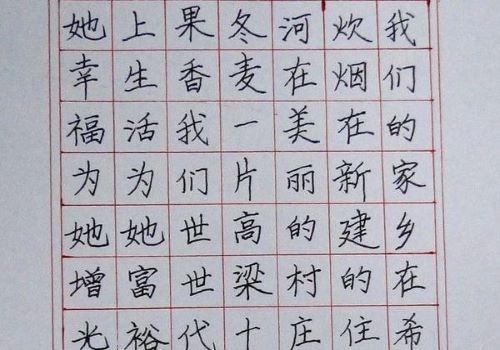 我们的家乡在希
炊烟在新建的住
河在美丽的村庄
冬麦一片高梁十
果香我们世世代
上生活为她富裕
她幸福为她增光